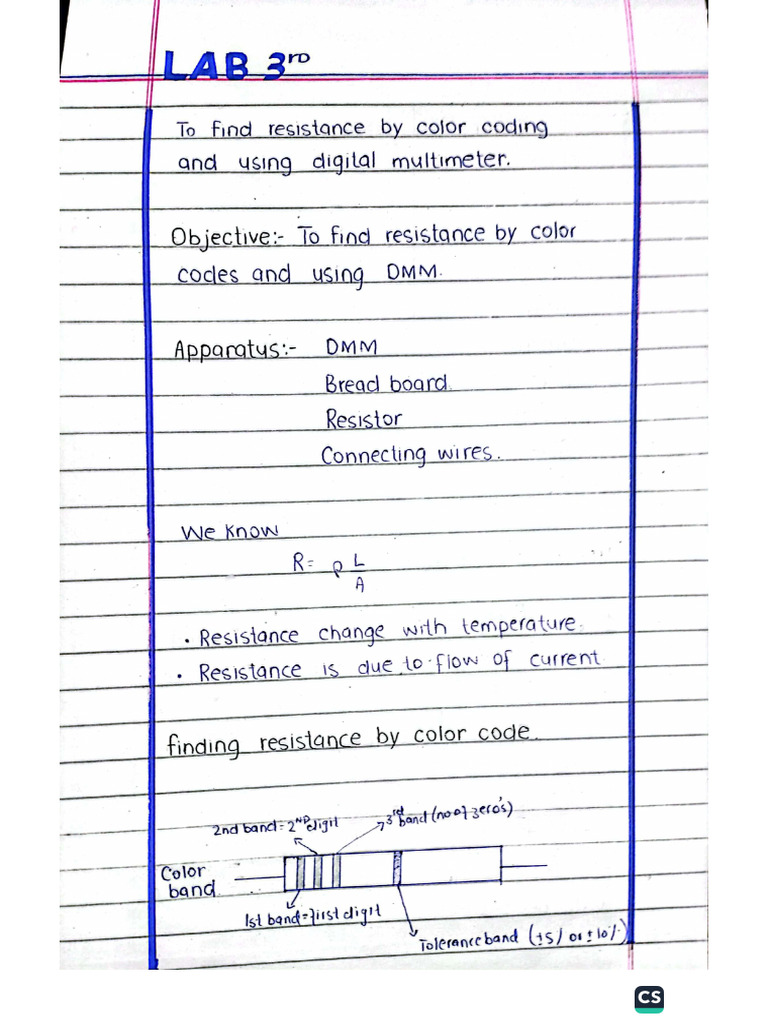 LAB 3rd
To find resistance by color coding
and using digital multimeter.
Objective:- To find resistance by color
codes and using DMM.
Apparatus:- DMM
Bread board.
Resistor
Connecting wires.
We know
R= ρ L/A
• Resistance change with temperature.
• Resistance is due to flow of current
finding resistance by color code.
2nd band = 2ND digit
3rd band (no of zero's)
Color
band
1st band = first digit
Tolerance band (±5% or ±10%)
CS